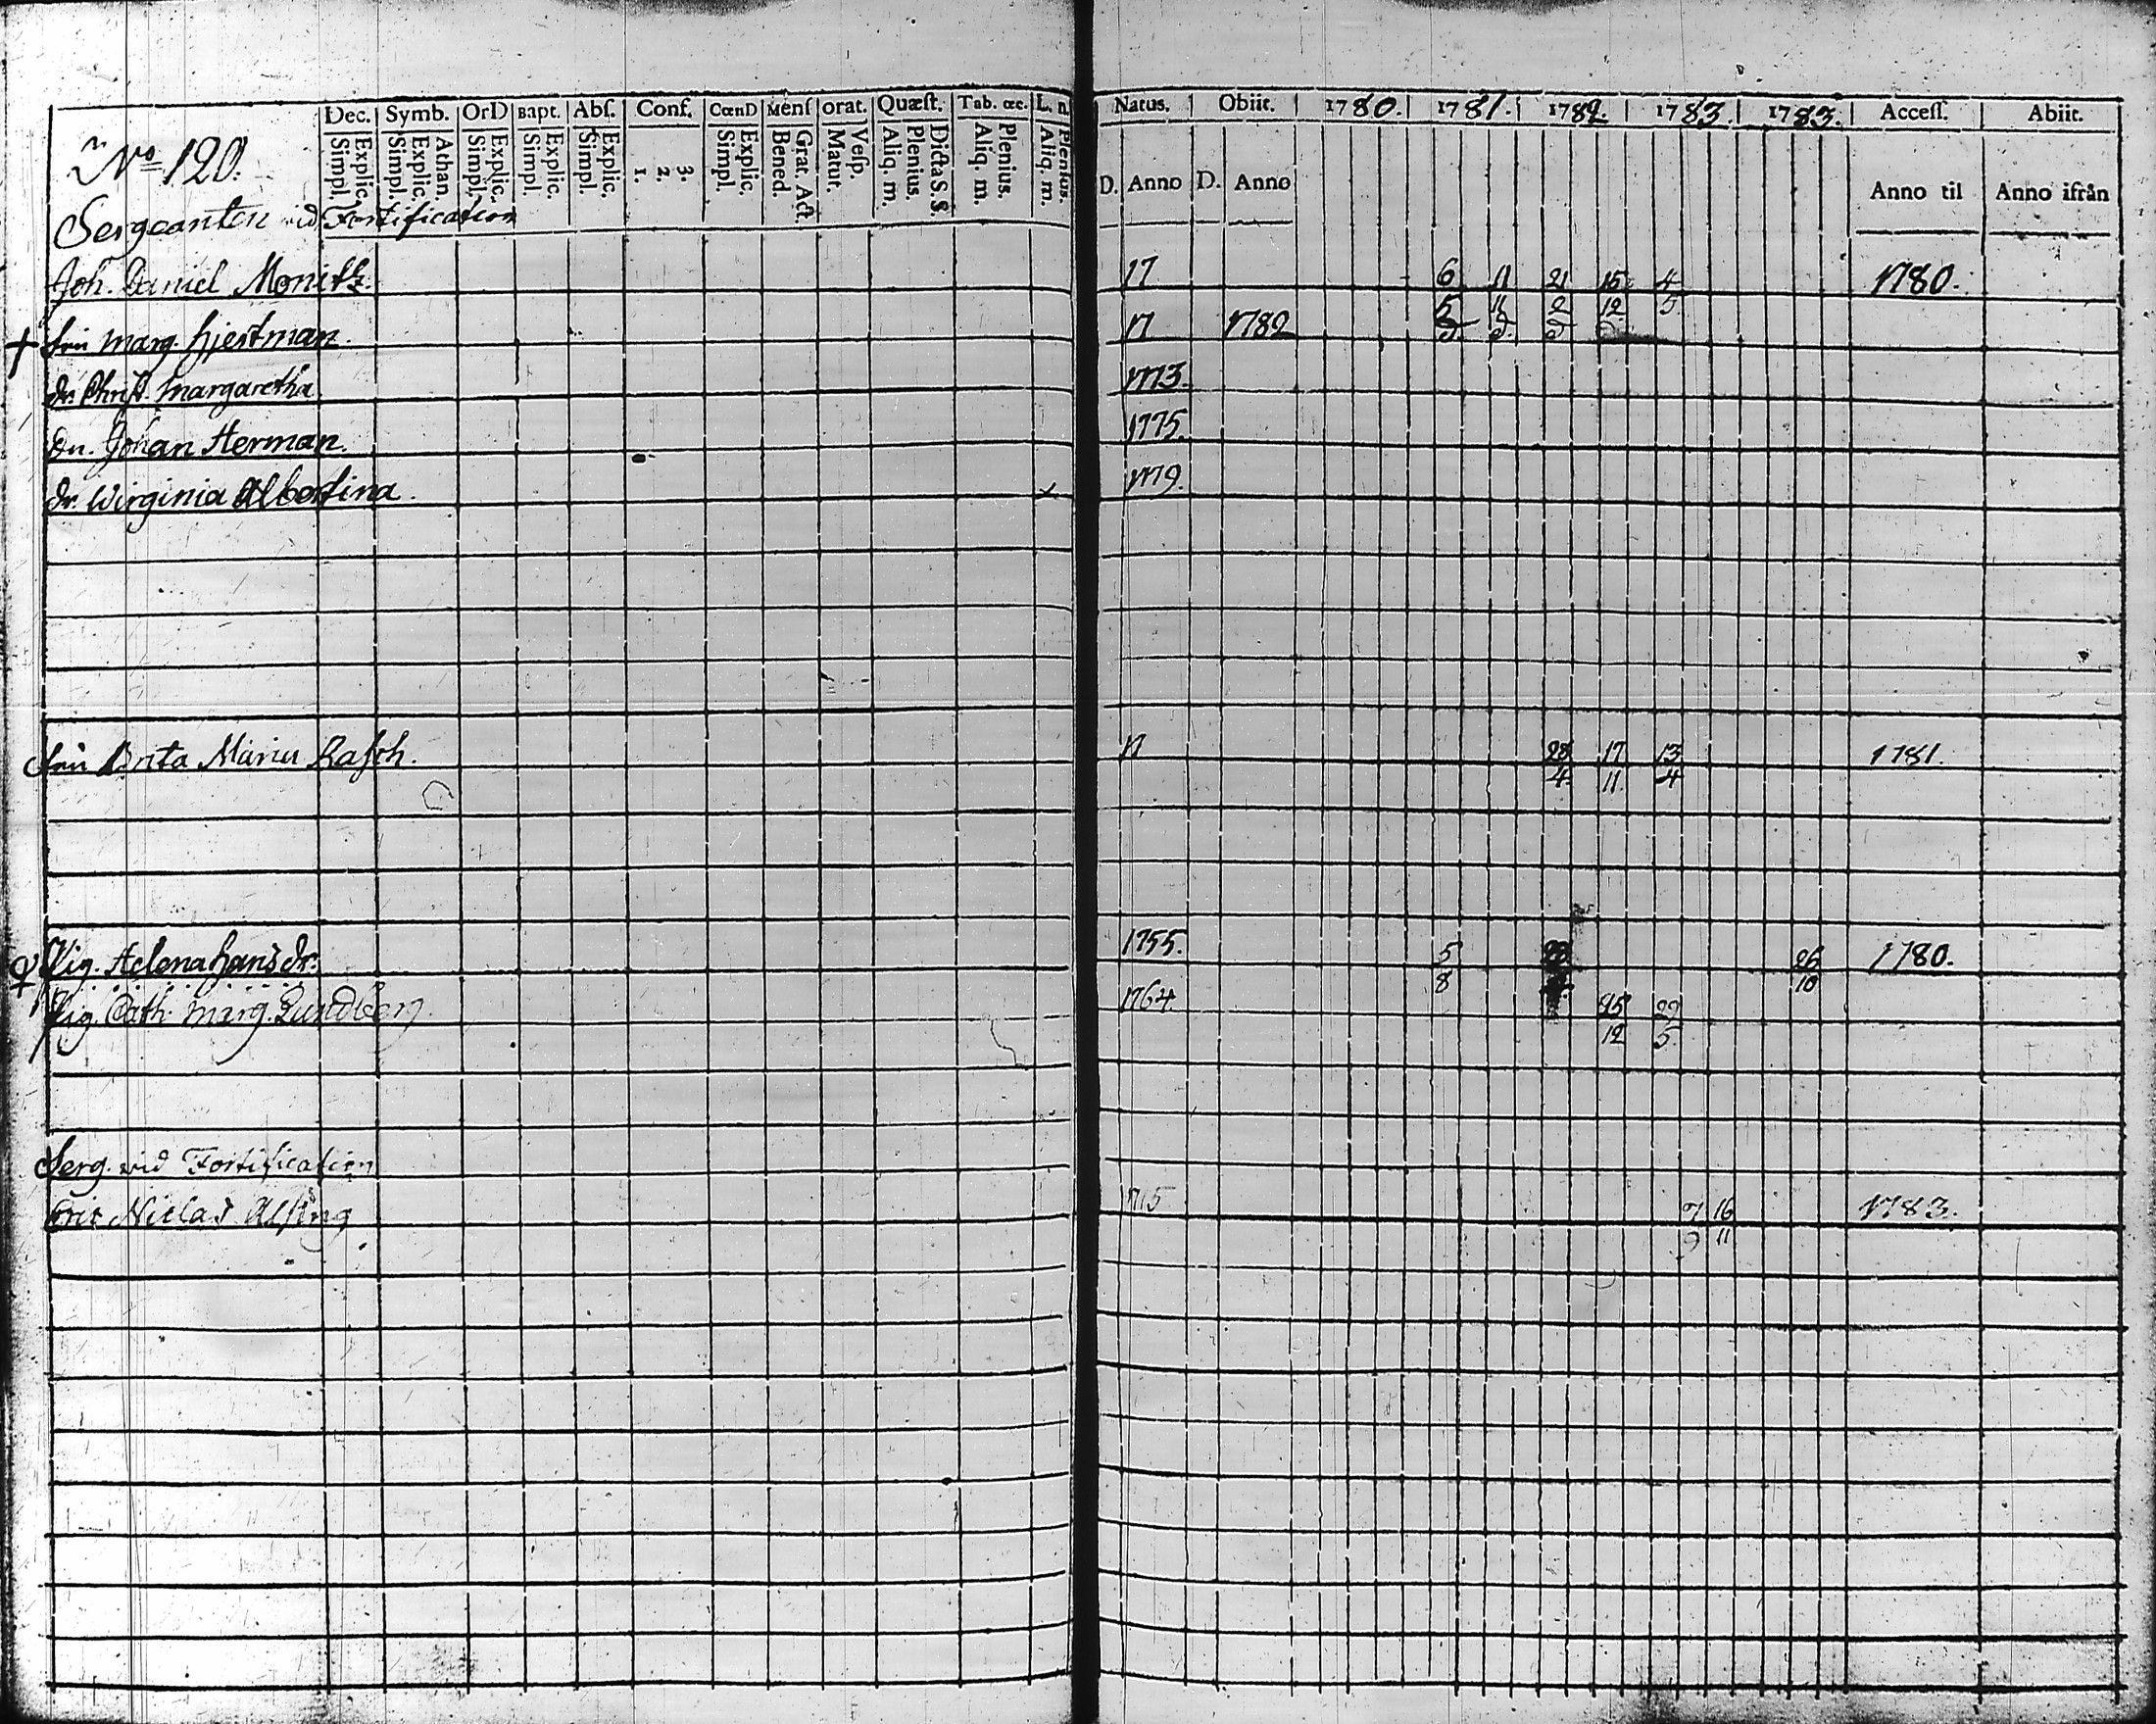 Dec. Symb. OrD Bapt. Abſ. Conf. CœnD Menſ Orat. Quæſt. Tab. œc. L. n
Simpl. Explic. Simpl. Explic. Athan. Simpl. Explic. Simpl. Explic. Simpl. Explic. 1. 2. 3. Simpl. Explic. Bened. Grat. Act. Matut. Veſp. Aliq. m. Plenius. Dicta S. S. Aliq. m. Plenius. Aliq. m. Plenius.
Natus. Obiit. 1780. 1781. 1782. 1783. 1783. Acceſſ. Abiit.
D. Anno D. Anno Anno til Anno ifrån
No 120.
Sergeanten vid Fortification
Joh. Daniel Monitz. 17 6 11 21 15 4 1780.
5 11 2 12 5
+ hru Marg. Hjestman. 17 1782
dr. Christ. Margaretha 1773.
dn. Johan Herman. 1775.
dr. Wirginia Albertina. 1779.
hru Brita Maria Rasch. 17 28 17 13 1781.
4. 11. 4
Pig. Helena Hansdr. 1755. 5 26 1780.
8 10
Pig. Cath. Marg. Lundberg 1764. 25 29
12 5.
Serg. vid Fortification
Eric Niclas Alsing 1715 7 16 1783.
9 11